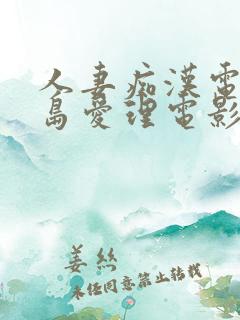 人妻痴漢電
島愛理電影
姜絲
未任同意禁止转载